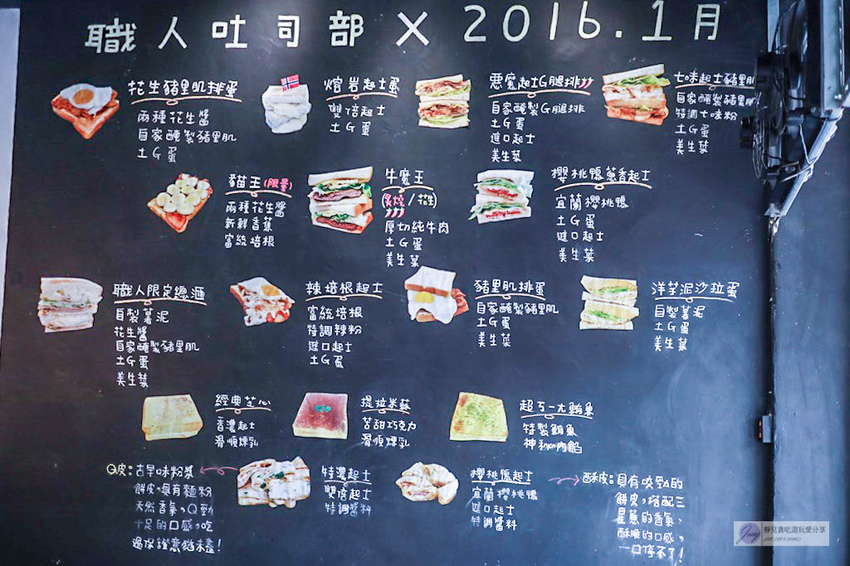 職人吐司部 X 2016.1月
花生豬里肌排蛋
兩種花生醬
自家醃製豬里肌
土G蛋
熔岩起士蛋
雙倍起士
土G蛋
惡宅起士G腿排
自家醃製G腿排
土G蛋
進口起士
美生菜
七味起士豬里肌
自家醃製豬里
特調七味粉
土G蛋
美生菜
貓王(限量)
兩種花生醬
新鮮香蕉
富統培根
牛魔王
(炙燒/花生)
厚切純牛肉
土G蛋
美生菜
櫻桃鴨蔥香起士
宜蘭櫻桃鴨
土G蛋
進口起士
美生菜
職人限定總滙
自製薯泥
花生醬
自家醃製豬里肌
土G蛋
美生菜
辣培根起士
富統培根
特調辣粉
進口起士
土G蛋
豬里肌排蛋
自家醃製豬里肌
土G蛋
美生菜
洋芋泥沙拉蛋
自製薯泥
土G蛋
美生菜
經典芝心
香濃起士
滑順煉乳
提拉米蘇
苦甜巧克力
滑順煉乳
超ㄎㄧㄤ鮪魚
特製鮪魚
神秘的內餡
Q皮:古早味粉漿
餅皮,具有麵粉
天然香氣,Q勁
十足的口感,吃
過保證意猶未盡!
特濃起士
雙倍起士
特調醬料
櫻桃鴨起士
宜蘭櫻桃鴨
進口起士
特調醬料
酥皮:具有咬勁的
餅皮,搭配三
星蔥的香氣,
酥脆的口感,
一口停不了!
靜兒貪吃遊玩愛分享